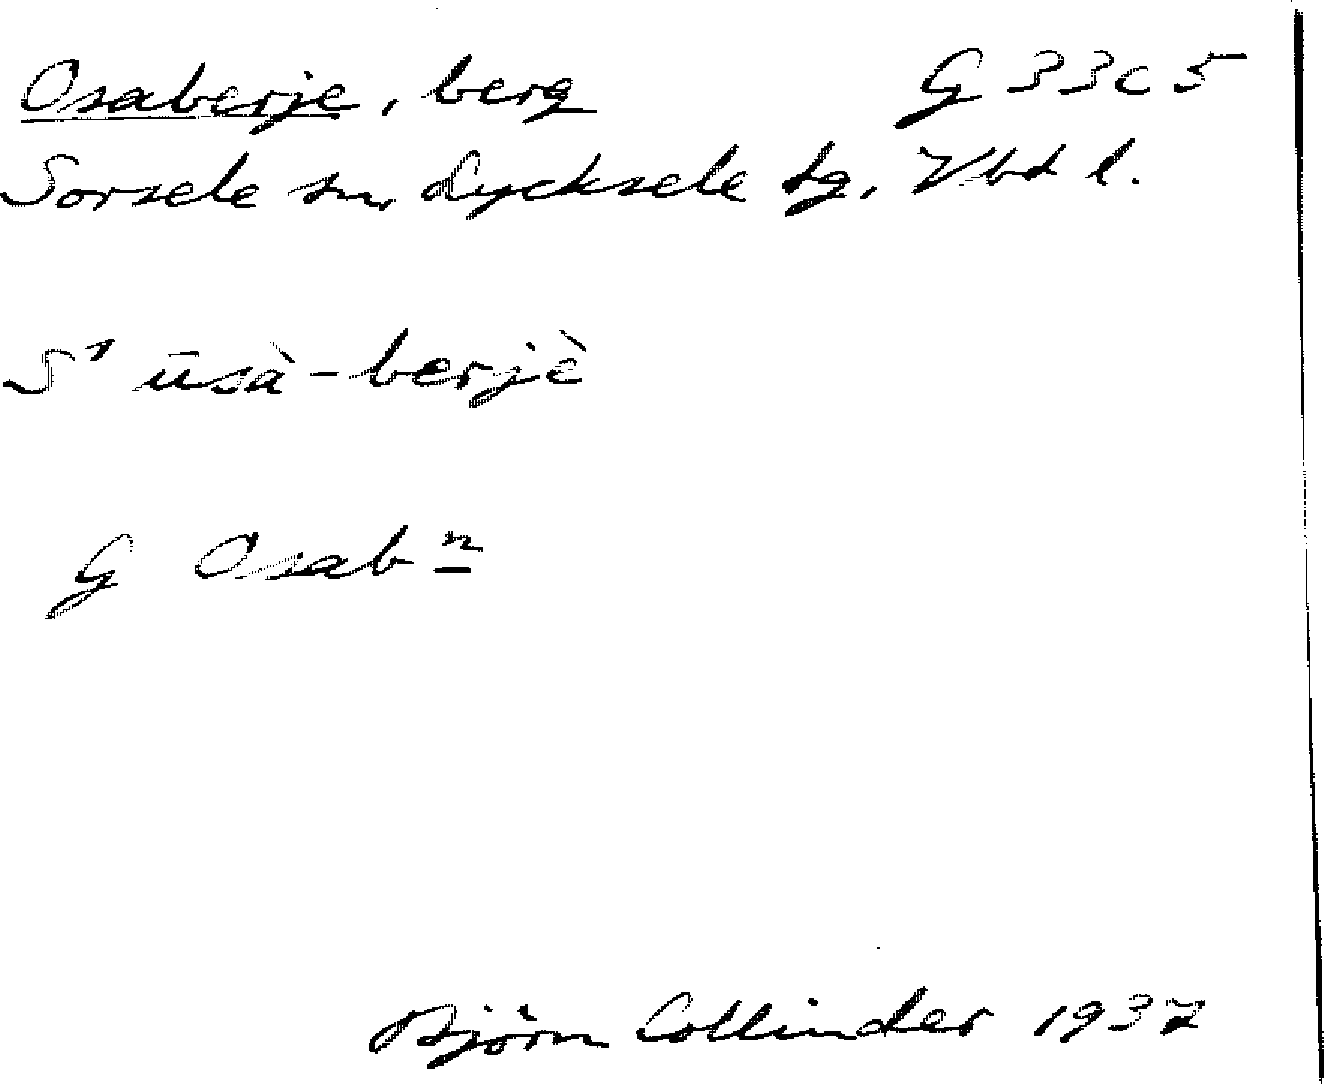 Osaberje, berg G 33c5
Sorsele sn, Lycksele tg. Vbt l.
S¹ ūsà-berjè
G Osab n
Björn Collinder 1937